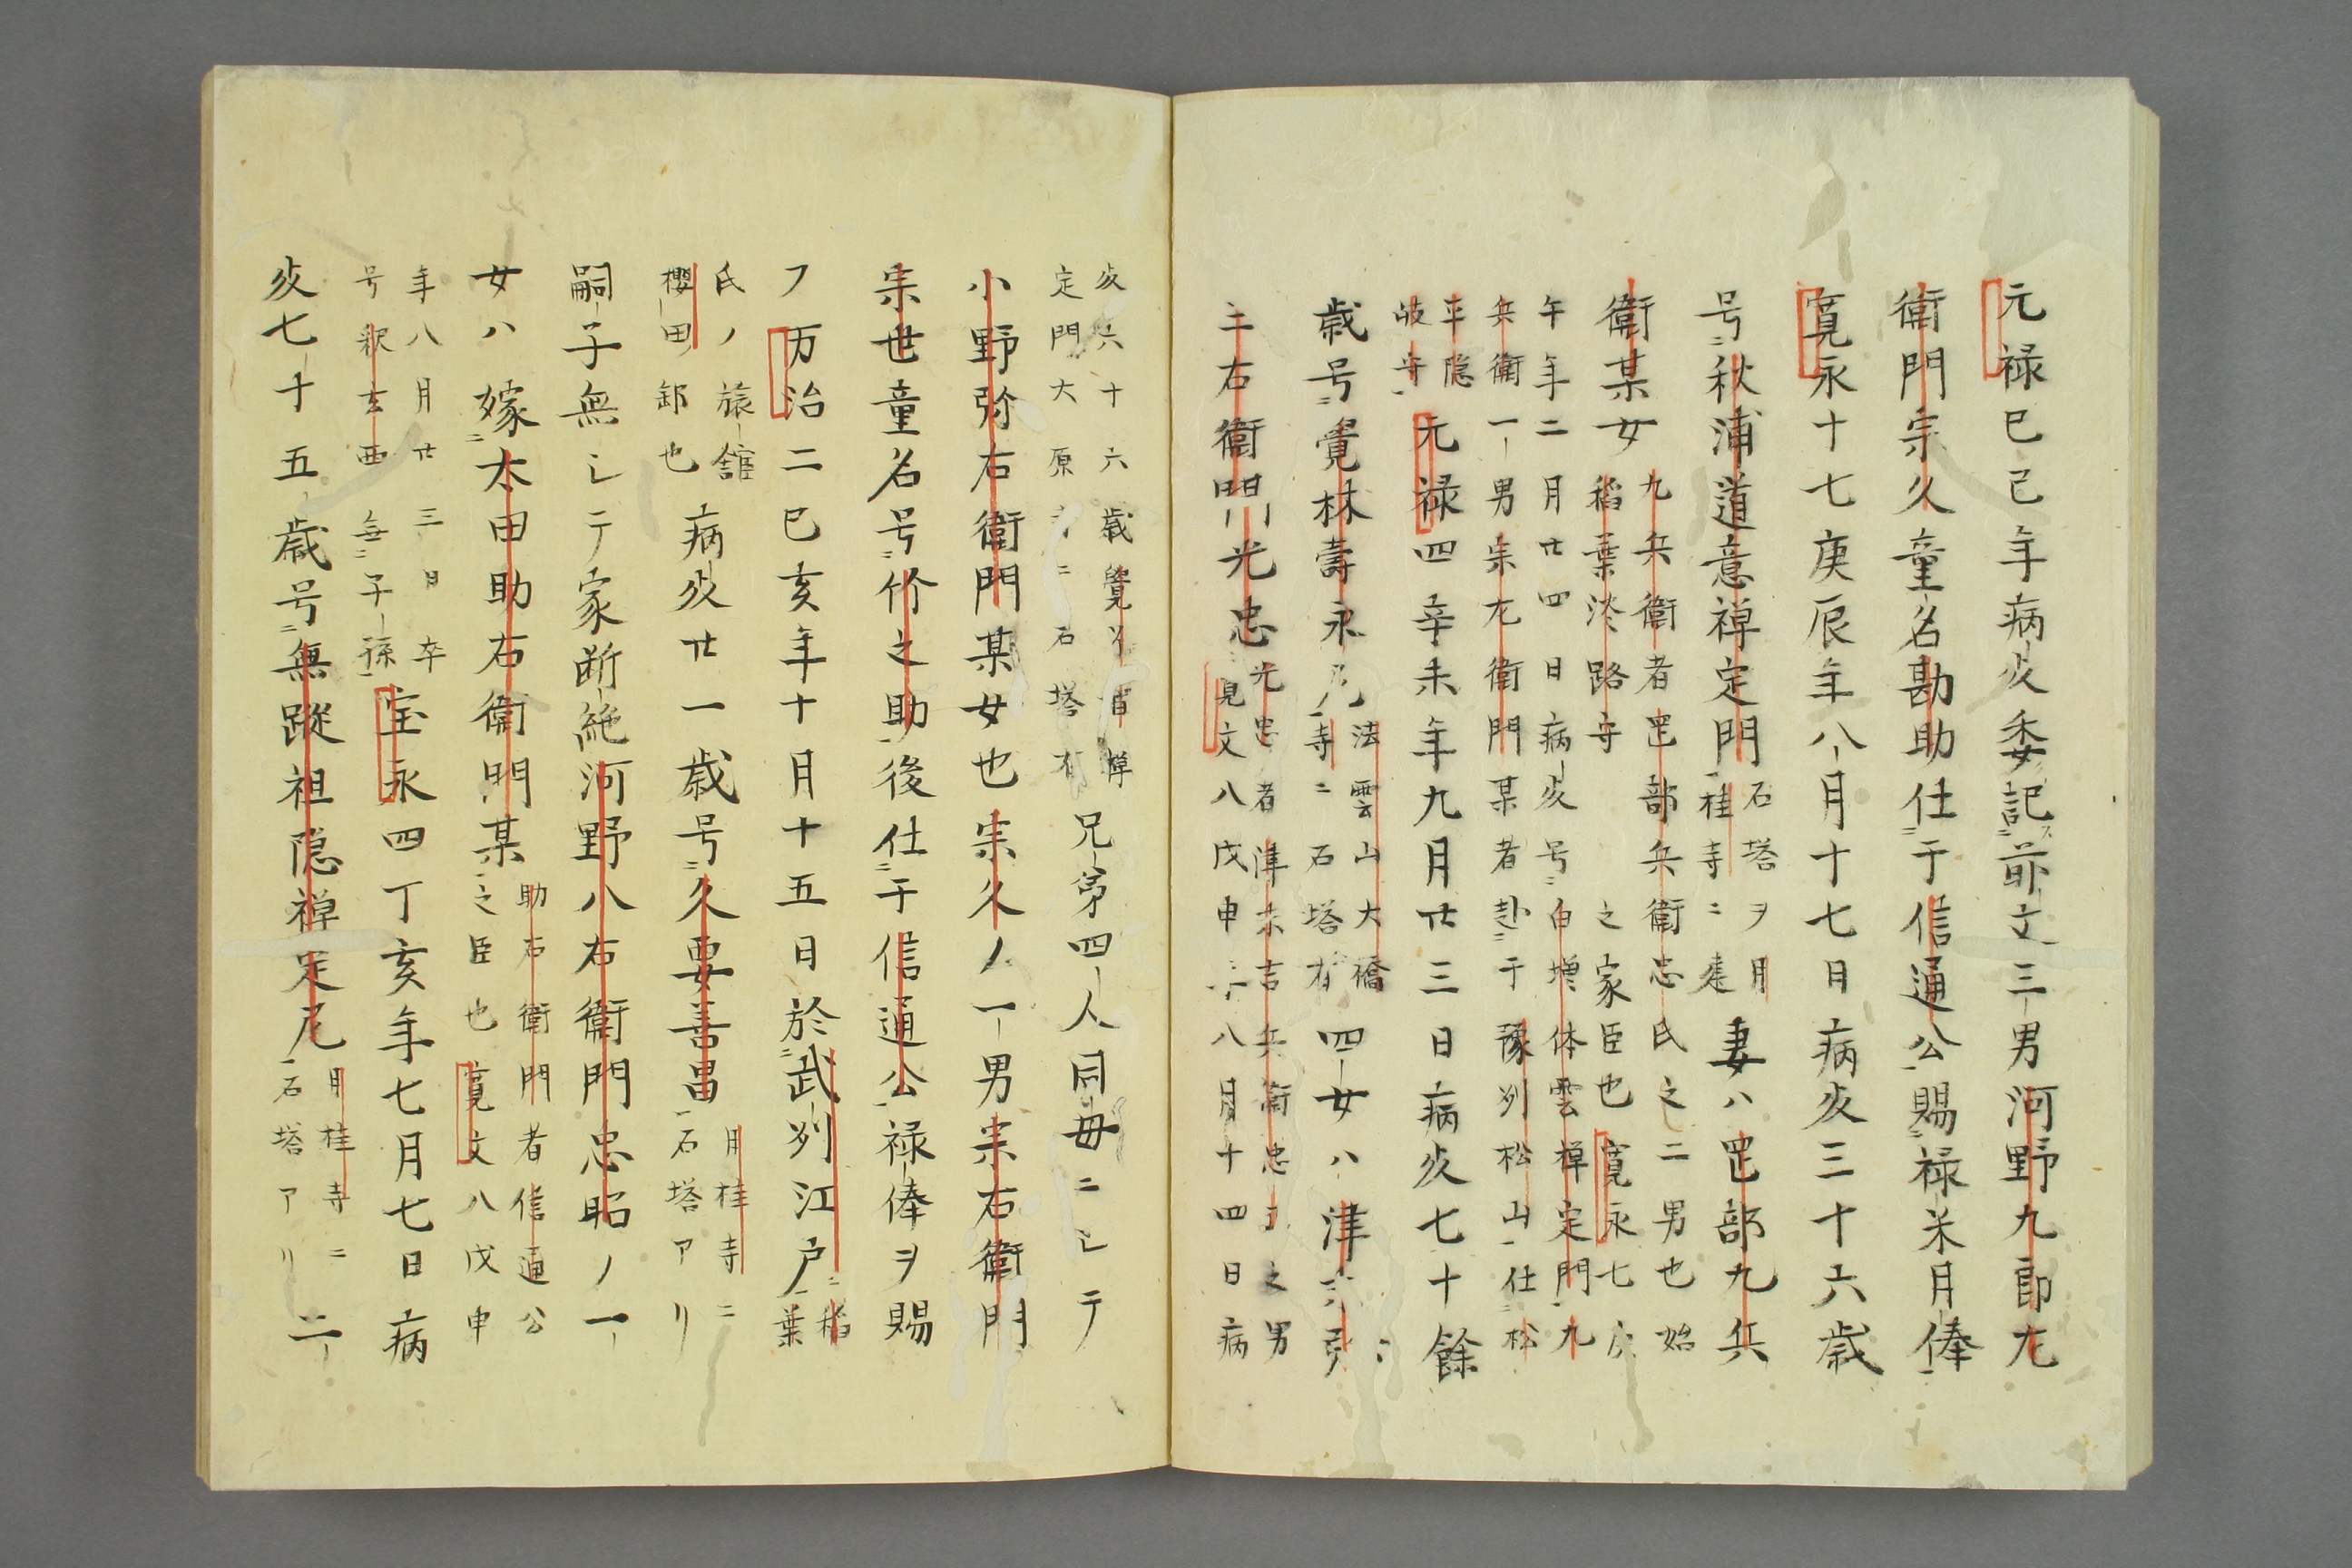 元禄己巳年病死委記前文三男河野九郎尤
衛門宗久童名勘助仕于信通公賜禄米月俸
寛永十七庚辰年八月十七日病死三十六歳
号秋浦道意禅定門
石塔ヲ月
桂寺ニ建
妻ハ罡部九兵
衛某女
九兵衛者罡部兵衛忠氏之二男也始
稻葉淡路守之家臣也寛永七庚
午年二月廿四日病死号白増体雲禅定門九
兵衛一男宗尤衛門某者赴于豫刕松山仕松
平隠
岐守
元禄四辛未年九月廿三日病死七十餘
歳号覺林壽永尼
法雲山大橋
寺ニ石塔有
四女ハ津
三右衛門光忠
光忠者津末吉兵衛忠之男
寛文八戊申年八月十四日病
死六十六歳覺禅
定門大原寺ニ石塔有
兄弟四人同毋ニシテ
小野弥右衛門某女也宗久ノ一男宗右衛門
宗世童名号竹之助後仕于信通公禄俸ヲ賜
フ万治二己亥年十月十五日於武刕江戸
稻
葉
氏ノ旅舘
櫻田邸也
病死廿一歳号久要善昌
月桂寺ニ
石塔アリ
嗣子無シテ家断絶河野八右衛門忠昭ノ一
女ハ嫁太田助右衛門某
助右衛門者信通公
之臣也寛文八戊申
年八月廿三日卒
号釈玄西無子孫
宝永四丁亥年七月七日病
死七十五歳号無蹤祖隠禅定尼
月桂寺ニ
石塔アリ
二